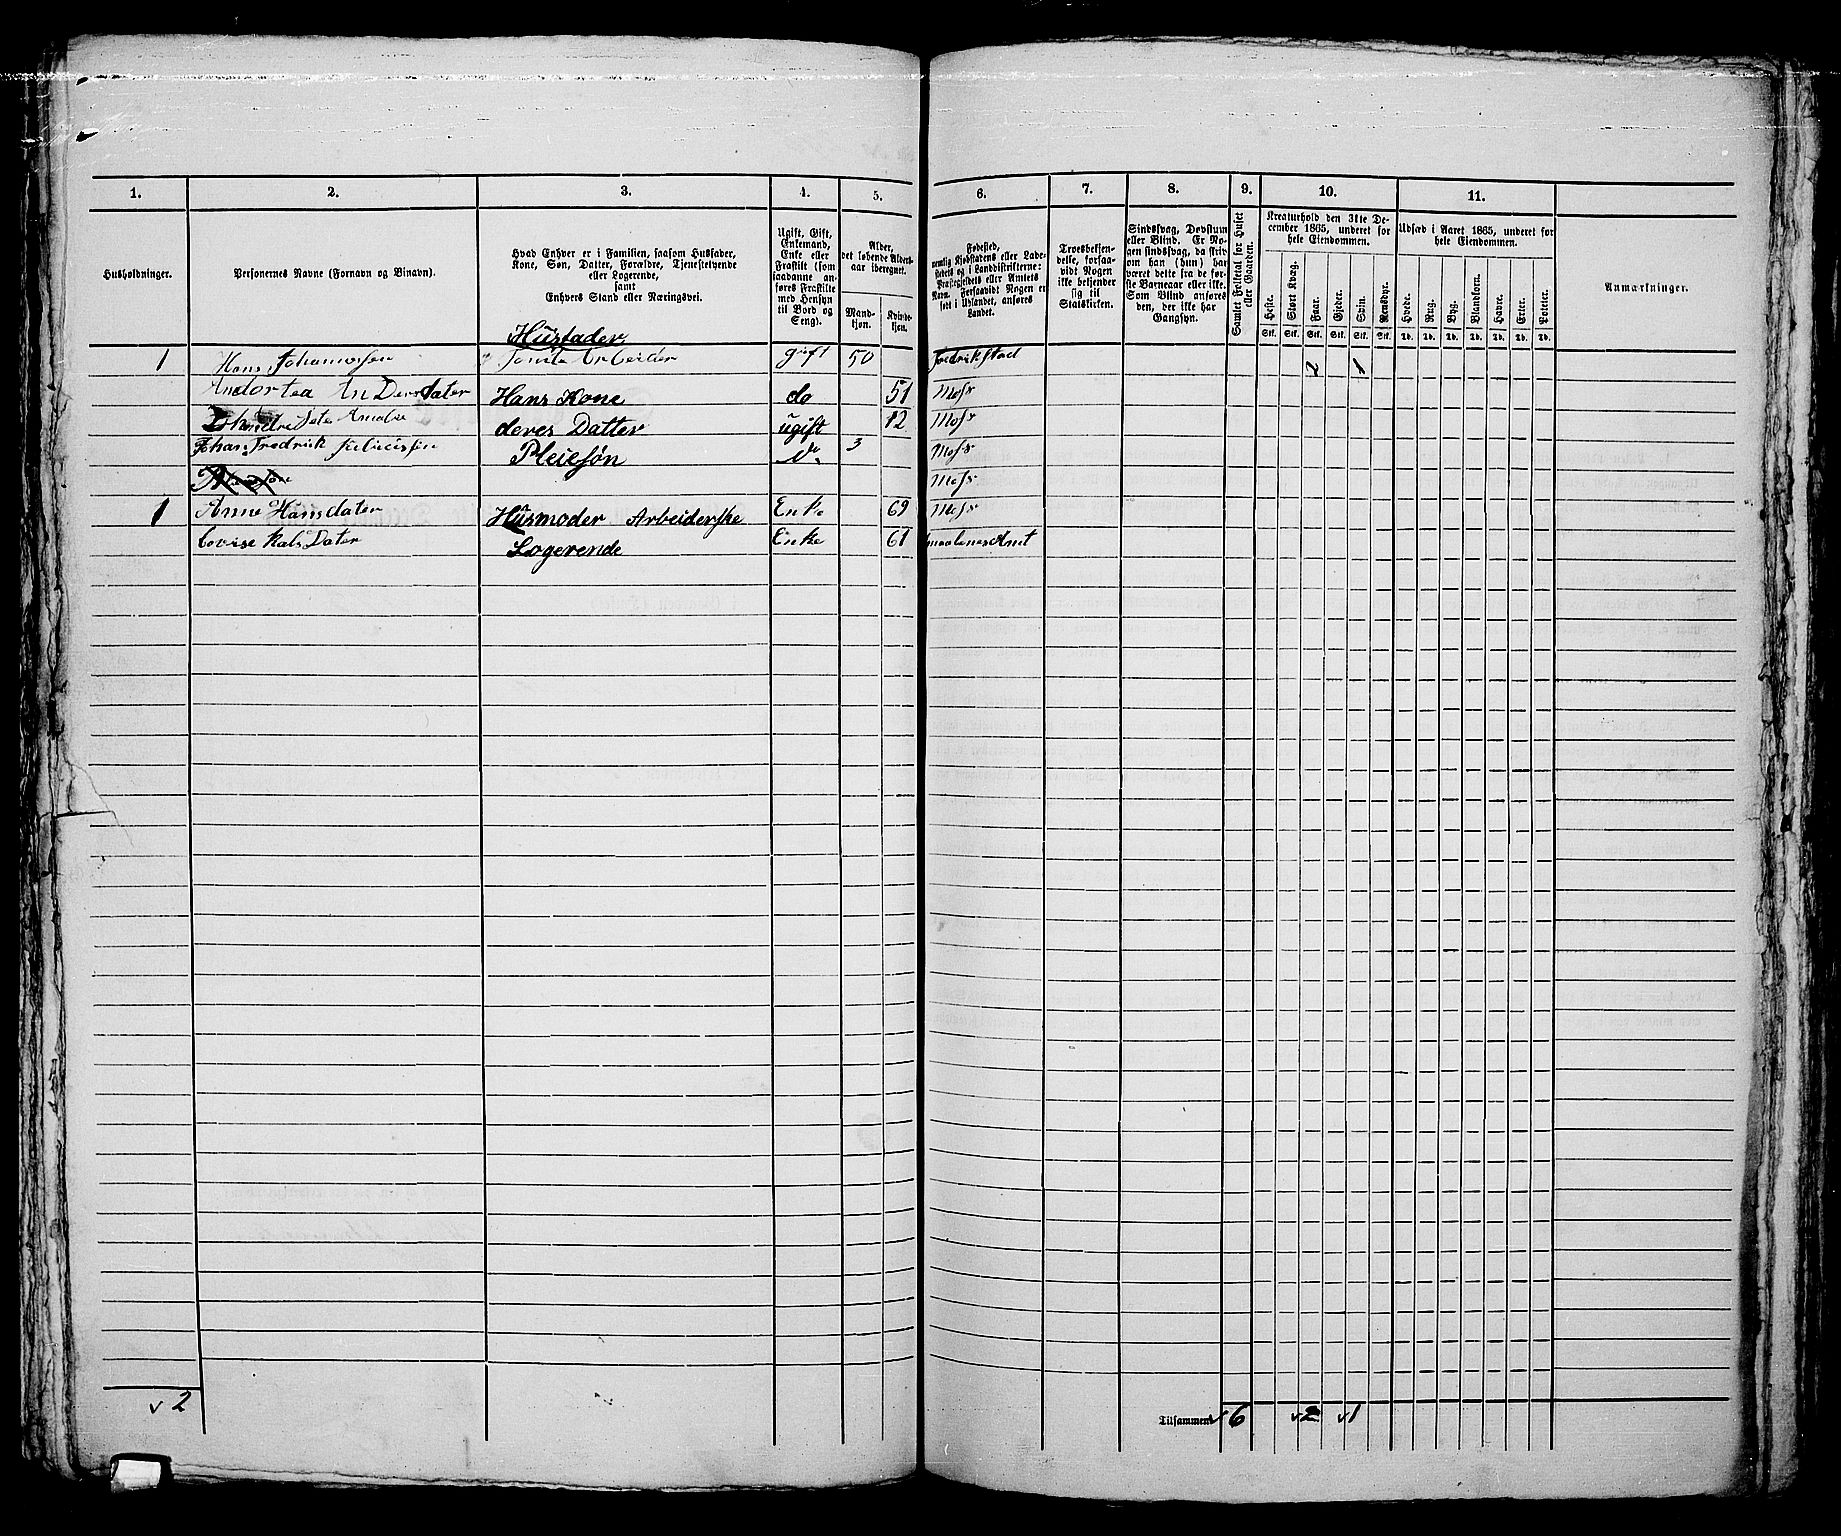 1. 2. 3. 4. 5. 6. 7. 8. 9. 10. 11.
Husholdninger.
Personernes Navne (Fornavn og Binavn).
Hvad Enhver er i Familien, saasom Husfader,
Kone, Søn, Datter, Forældre, Tjenestetyende
eller Logerende,
samt
Enhvers Stand eller Næringsvei.
Ugift, Gift,
Enkemand,
Enke eller
Fraskilt (som
saadanne an-
føres Fraskilte
med Hensyn
til Bord og
Seng).
Alder,
det løbende Alders-
aar iberegnet.
Mand-
kjøn.
Kvinde-
kjøn.
Fødested,
nemlig Kjøbstadens eller Lade-
stedets og i Landdistrikterne:
Præstegjeldets eller Amtets
Navn. Forsaavidt Nogen er
født i Udlandet, anføres
Landet.
Troesbekjen-
delse, forsaa-
vidt Nogen
ikke bekjender
sig til
Statskirken.
Sindssvag, Døvstum
eller Blind. Er No-
gen sindssvag, da skriv
om han (hun) har
været dette fra de før-
ste Barneaar eller ikke.
Som Blind anføres
den, der ikke har
Gangsyn.
Samlet Folketal for Huset
eller Gaarden.
Kreaturhold den 31te De-
cember 1865, underet for
hele Eiendommen.
Heste. Stort Kvæg. Faar. Gjeder. Sviin. Rensdyr.
Stk. Stk. Stk. Stk. Stk. Stk.
Udsæd i Aaret 1865, underet for
hele Eiendommen.
Hvede. Rug. Byg. Blandkorn. Havre. Erter. Poteter.
Td. Td. Td. Td. Td. Td. Td.
Anmærkninger.
Husfader
1 Hans Johannesen Tomte Arbeider gift 50 Fredrikstad 2 1
Andortea An Dersdater Hans Kone do 51 Moss
deres Datter ugift 12 Moss
Johan Fredrik Pleiesøn do 3 Moss
Moss
1 Anne Hansdater Husmoder Arbeiderske Enke 69 Moss
Lovise Kals Dater Logerende Enke 61 Smaalenes Amt
v 2 Tilsammen v 6 v2 v1